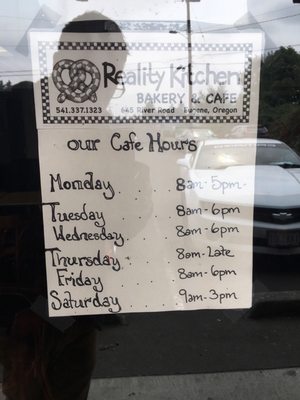 Reality Kitchen
BAKERY & CAFE
541.337.1323 645 River Road Eugene, Oregon
our Cafe Hours
Monday . . . 8am-5pm
Tuesday . . . 8am-6pm
Wednesday . . . 8am-6pm
Thursday . . . 8am-Late
Friday . . . 8am-6pm
Saturday . . . 9am-3pm